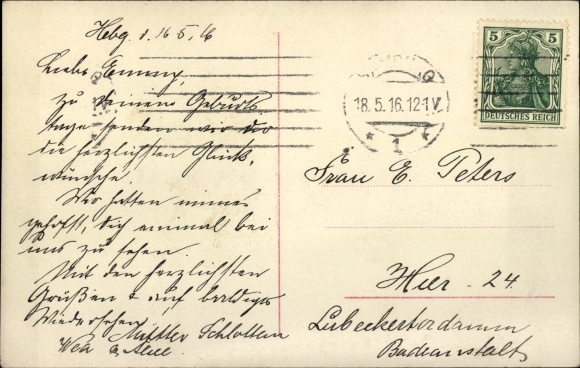 Hbg. d. 16 5. 16
Liebe Emmy,
Zu Deinem Geburts
tage senden wir dir
die herzlichsten Glück,
wünsche.
Wir hatten immer
gehofft, dich einmal bei
uns zu sehen.
Mit den herzlichsten
Grüßen & auf baldiges
Wiedersehen
Schlotten
&
5 5
DEUTSCHES REICH
18.5.16.12-1V.
* 1 *
Frau E. Peters
Hier - 24.
Lübeckertordamm
Badeanstalt